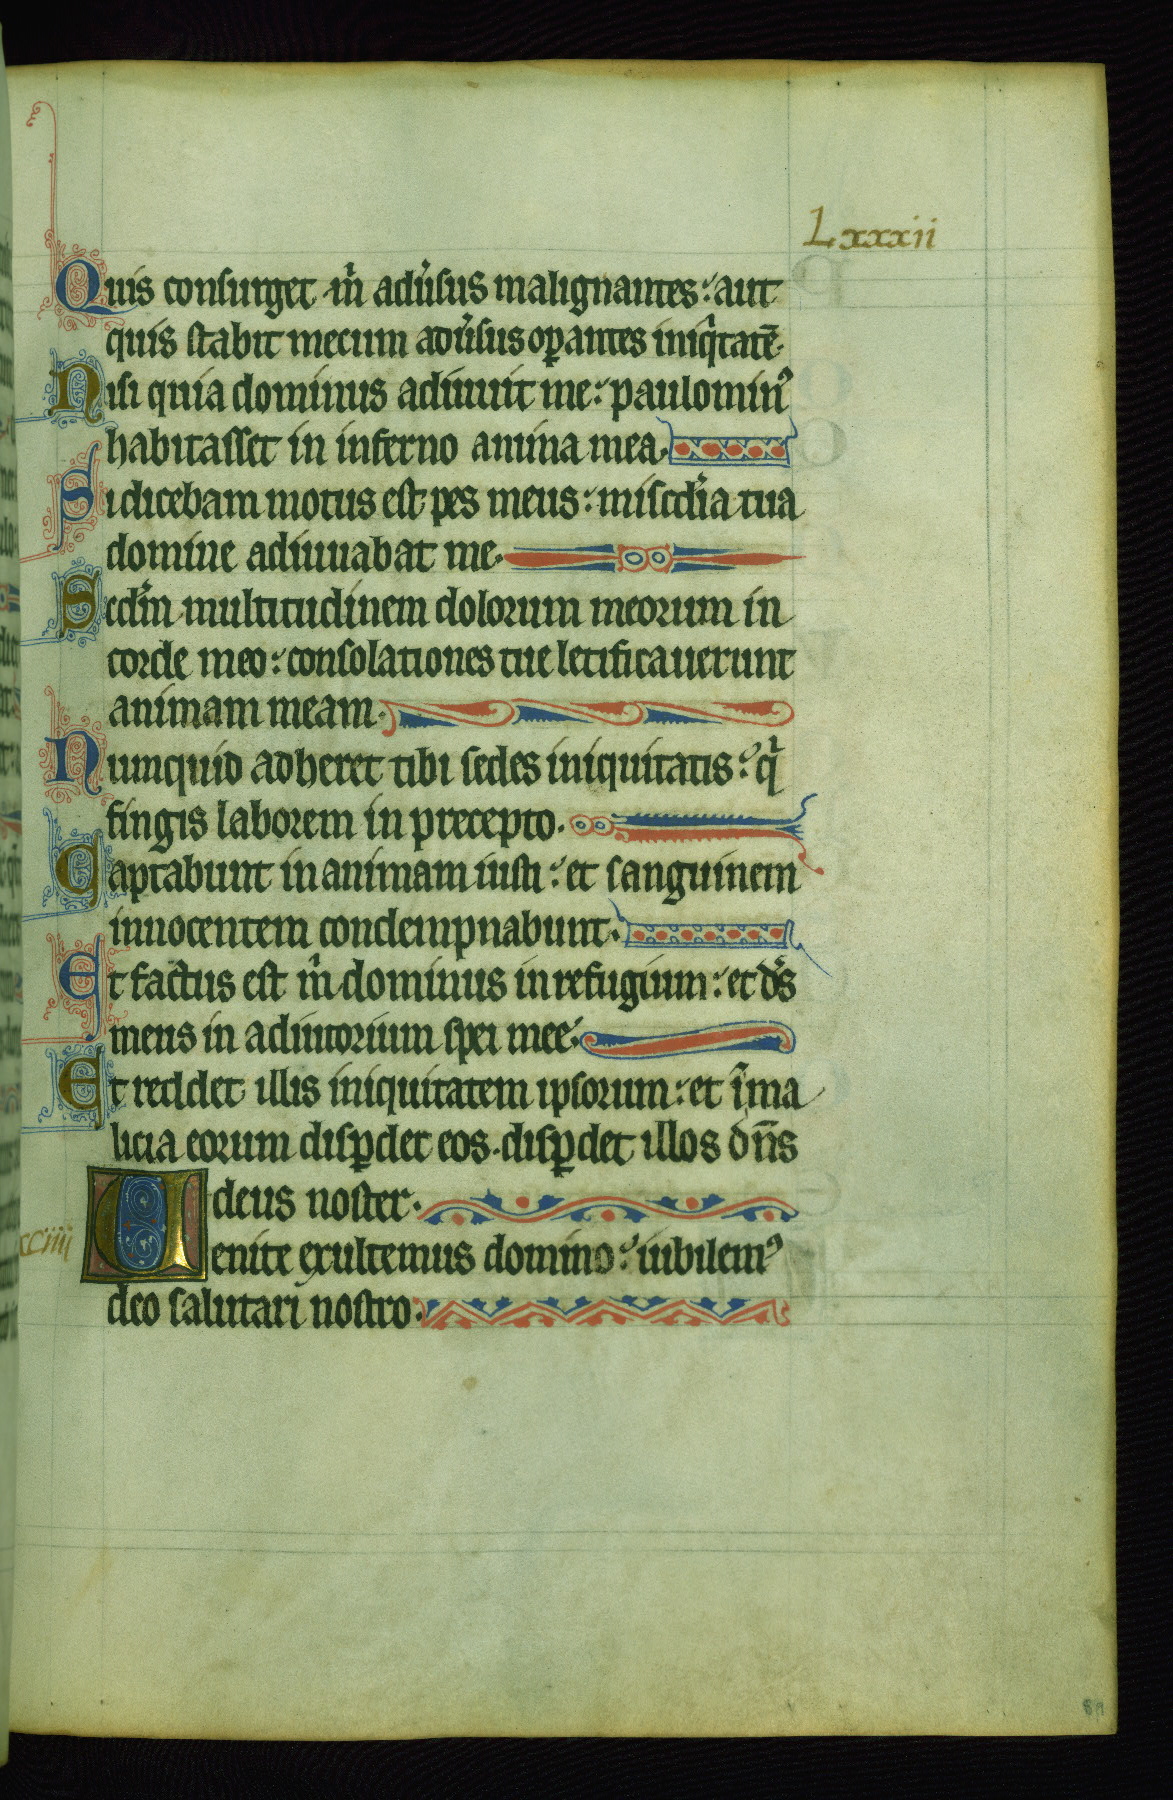 Lxxxii
Quis consurget m̃ adũsus malignantes: aut
quis stabit mecum adũsus oꝑantes iniq̃tatẽ.
Nisi quia dominus adiuuit me: paulominꝰ
habitasset in inferno anima mea.
Si dicebam motus est pes meus: misc̃dia tua
domine adiuuabat me.
Sc̃dm multitudinem dolorum meorum in
corde meo: consolationes tue letificauerunt
animam meam.
Numquid adheret tibi sedes iniquitatis: q̃
fingis laborem in precepto.
Captabunt in animam iusti: et sanguinem
innocentem condempnabunt.
Et factus est m̃ dominus in refugium: et ds̃
meus in adiutorium spei mee.
Et reddet illis iniquitatem ipsorum: et ĩ ma
licia eorum disꝑdet eos. disꝑdet illos dñs
deus noster.
Venite exultemus domino: iubilemꝰ
deo salutari nostro.